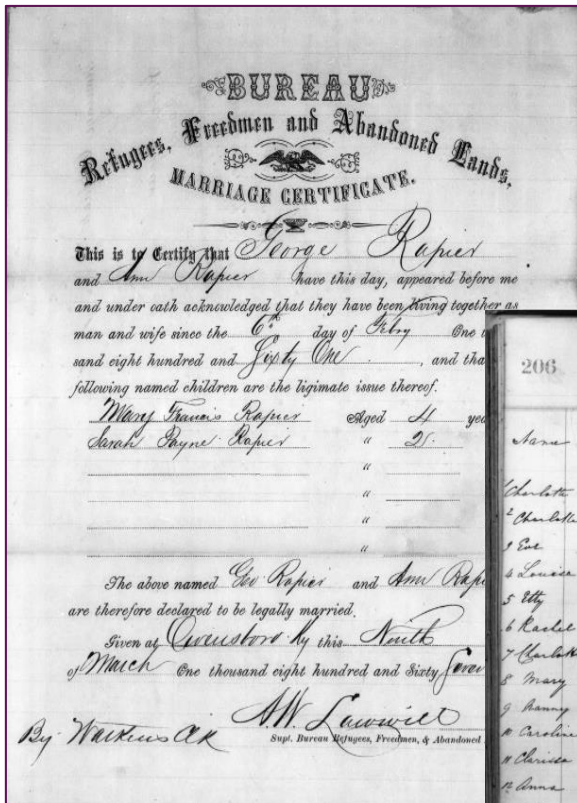 BUREAU
Refugees, Freedmen and Abandoned Lands,
MARRIAGE CERTIFICATE.
This is to Certify that George Rapier
and Ann Rapier have this day, appeared before me
and under oath acknowledged that they have been living together as
man and wife since the 6th day of Febry One
sand eight hundred and Sixty One, and tha
following named children are the ligimate issue thereof.
Mary Francis Rapier Aged 4 yea
Sarah Payne Rapier " 2
"
"
"
"
The above named Geo Rapier and Ann Rapi
are therefore declared to be legally married.
Given at Owensboro Ky this Ninth
of March One thousand eight hundred and Sixty Seven
A. W. Lawwill
By Watkins Clk
Supt. Bureau Refugees, Freedmen, & Abandoned
206
Name
1 Charlotte
2 Charlotte
3 Eve
4 Louisa
5 Etty
6 Rachel
7 Charlott
8 Mary
9 Nanny
10 Caroline
11 Clarissa
12 Anna